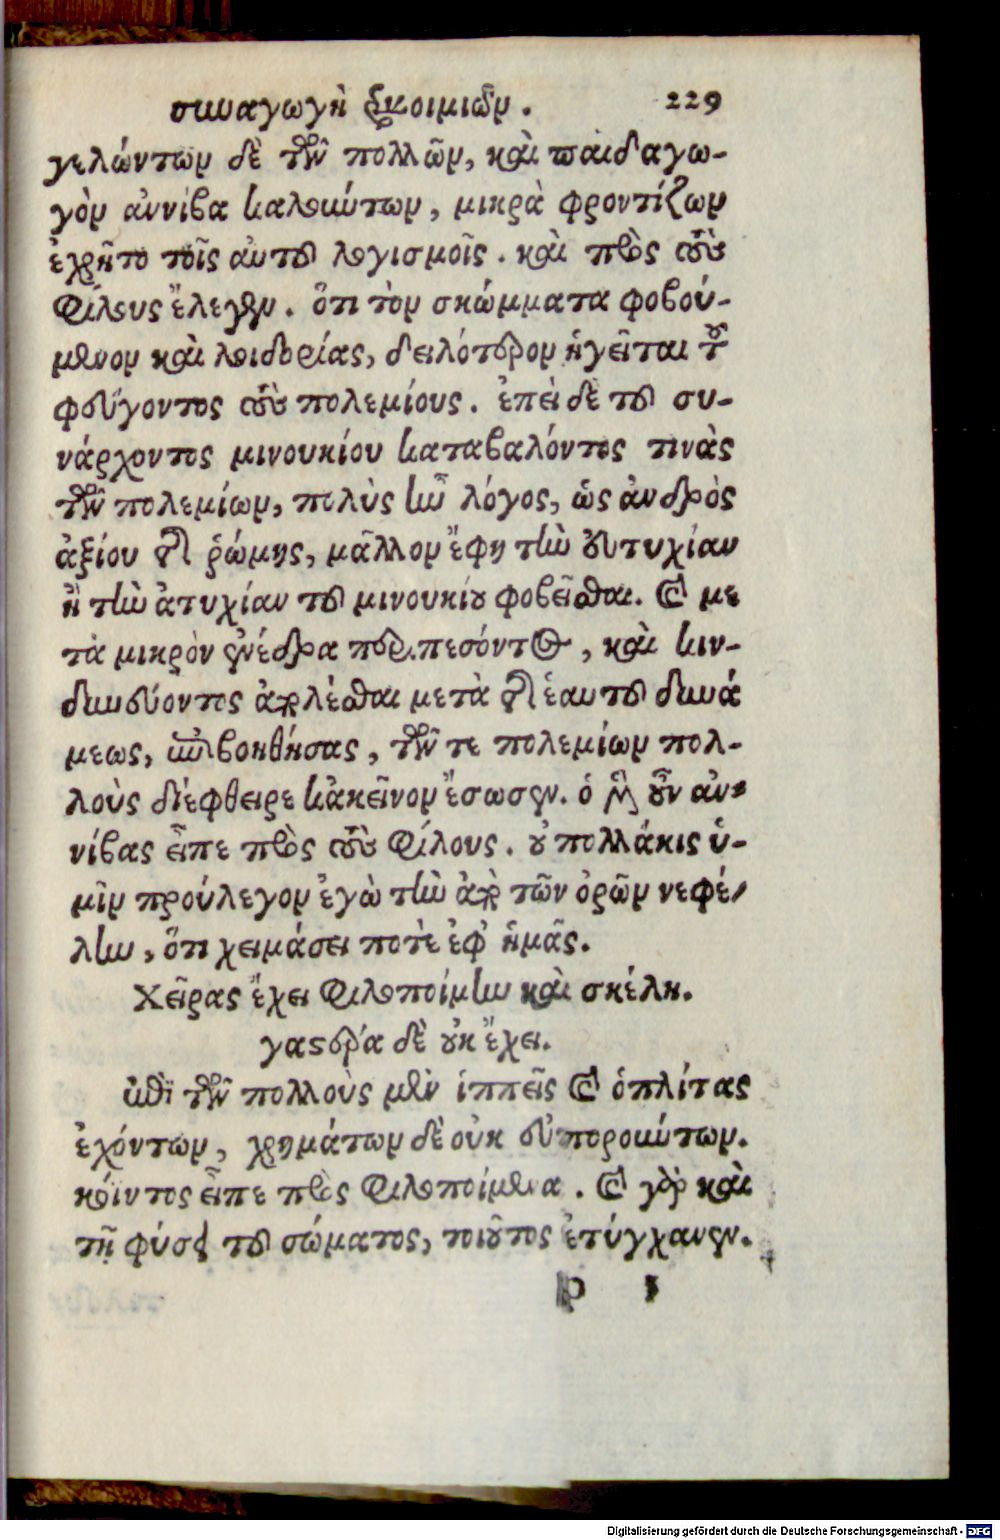 συναγωγὴ παροιμιῶν. 229
γελώντων δὲ τῶν πολλῶν, καὶ παιδαγω-
γὸν ἀννίβα καλούντων, μικρὰ φροντίζων
ἐχρῆτο τοῖς αὐτοῦ λογισμοῖς. καὶ πρὸς τοὺς
φίλους ἔλεγεν. ὅτι τὸν σκώμματα φοβού-
μενον καὶ λοιδορίας, δειλότερον ἡγεῖται τοῦ
φεύγοντος τοὺς πολεμίους. ἐπεὶ δὲ τοῦ συ-
νάρχοντος μινουκίου καταβαλόντος τινὰς
τῶν πολεμίων, πολὺς ἦν λόγος, ὡς ἀνδρὸς
ἀξίου τῆς ῥώμης, μᾶλλον ἔφη τὴν εὐτυχίαν
ἢ τὴν ἀτυχίαν τοῦ μινουκίου φοβεῖσθαι. καὶ με
τὰ μικρὸν ἐνέδρα περιπεσόντος, καὶ κιν-
δυνεύοντος ἀπολέσθαι μετὰ τῆς ἑαυτοῦ δυνά
μεως, ἐπιβοηθήσας, τῶν τε πολεμίων πολ-
λοὺς διέφθειρε κἀκεῖνον ἔσωσεν. ὁ μὲν οὖν ἀν-
νίβας εἶπε πρὸς τοὺς φίλους. οὐ πολλάκις ὑ-
μῖν προύλεγον ἐγὼ τὴν ἀπὸ τῶν ὀρῶν νεφέ-
λην, ὅτι χειμάσει ποτὲ ἐφ' ἡμᾶς.
Χεῖρας ἔχει φιλοποίμην καὶ σκέλη.
γαστέρα δὲ οὐκ ἔχει.
ἐπὶ τῶν πολλοὺς μὲν ἱππεῖς καὶ ὁπλίτας
ἐχόντων, χρημάτων δὲ οὐκ εὐπορούντων.
κόιντος εἶπε πρὸς φιλοποίμενα. καὶ γὰρ καὶ
τῇ φύσει τοῦ σώματος, τοιοῦτος ἐτύγχανεν.
P 3
Digitalisierung gefördert durch die Deutsche Forschungsgemeinschaft - DFG